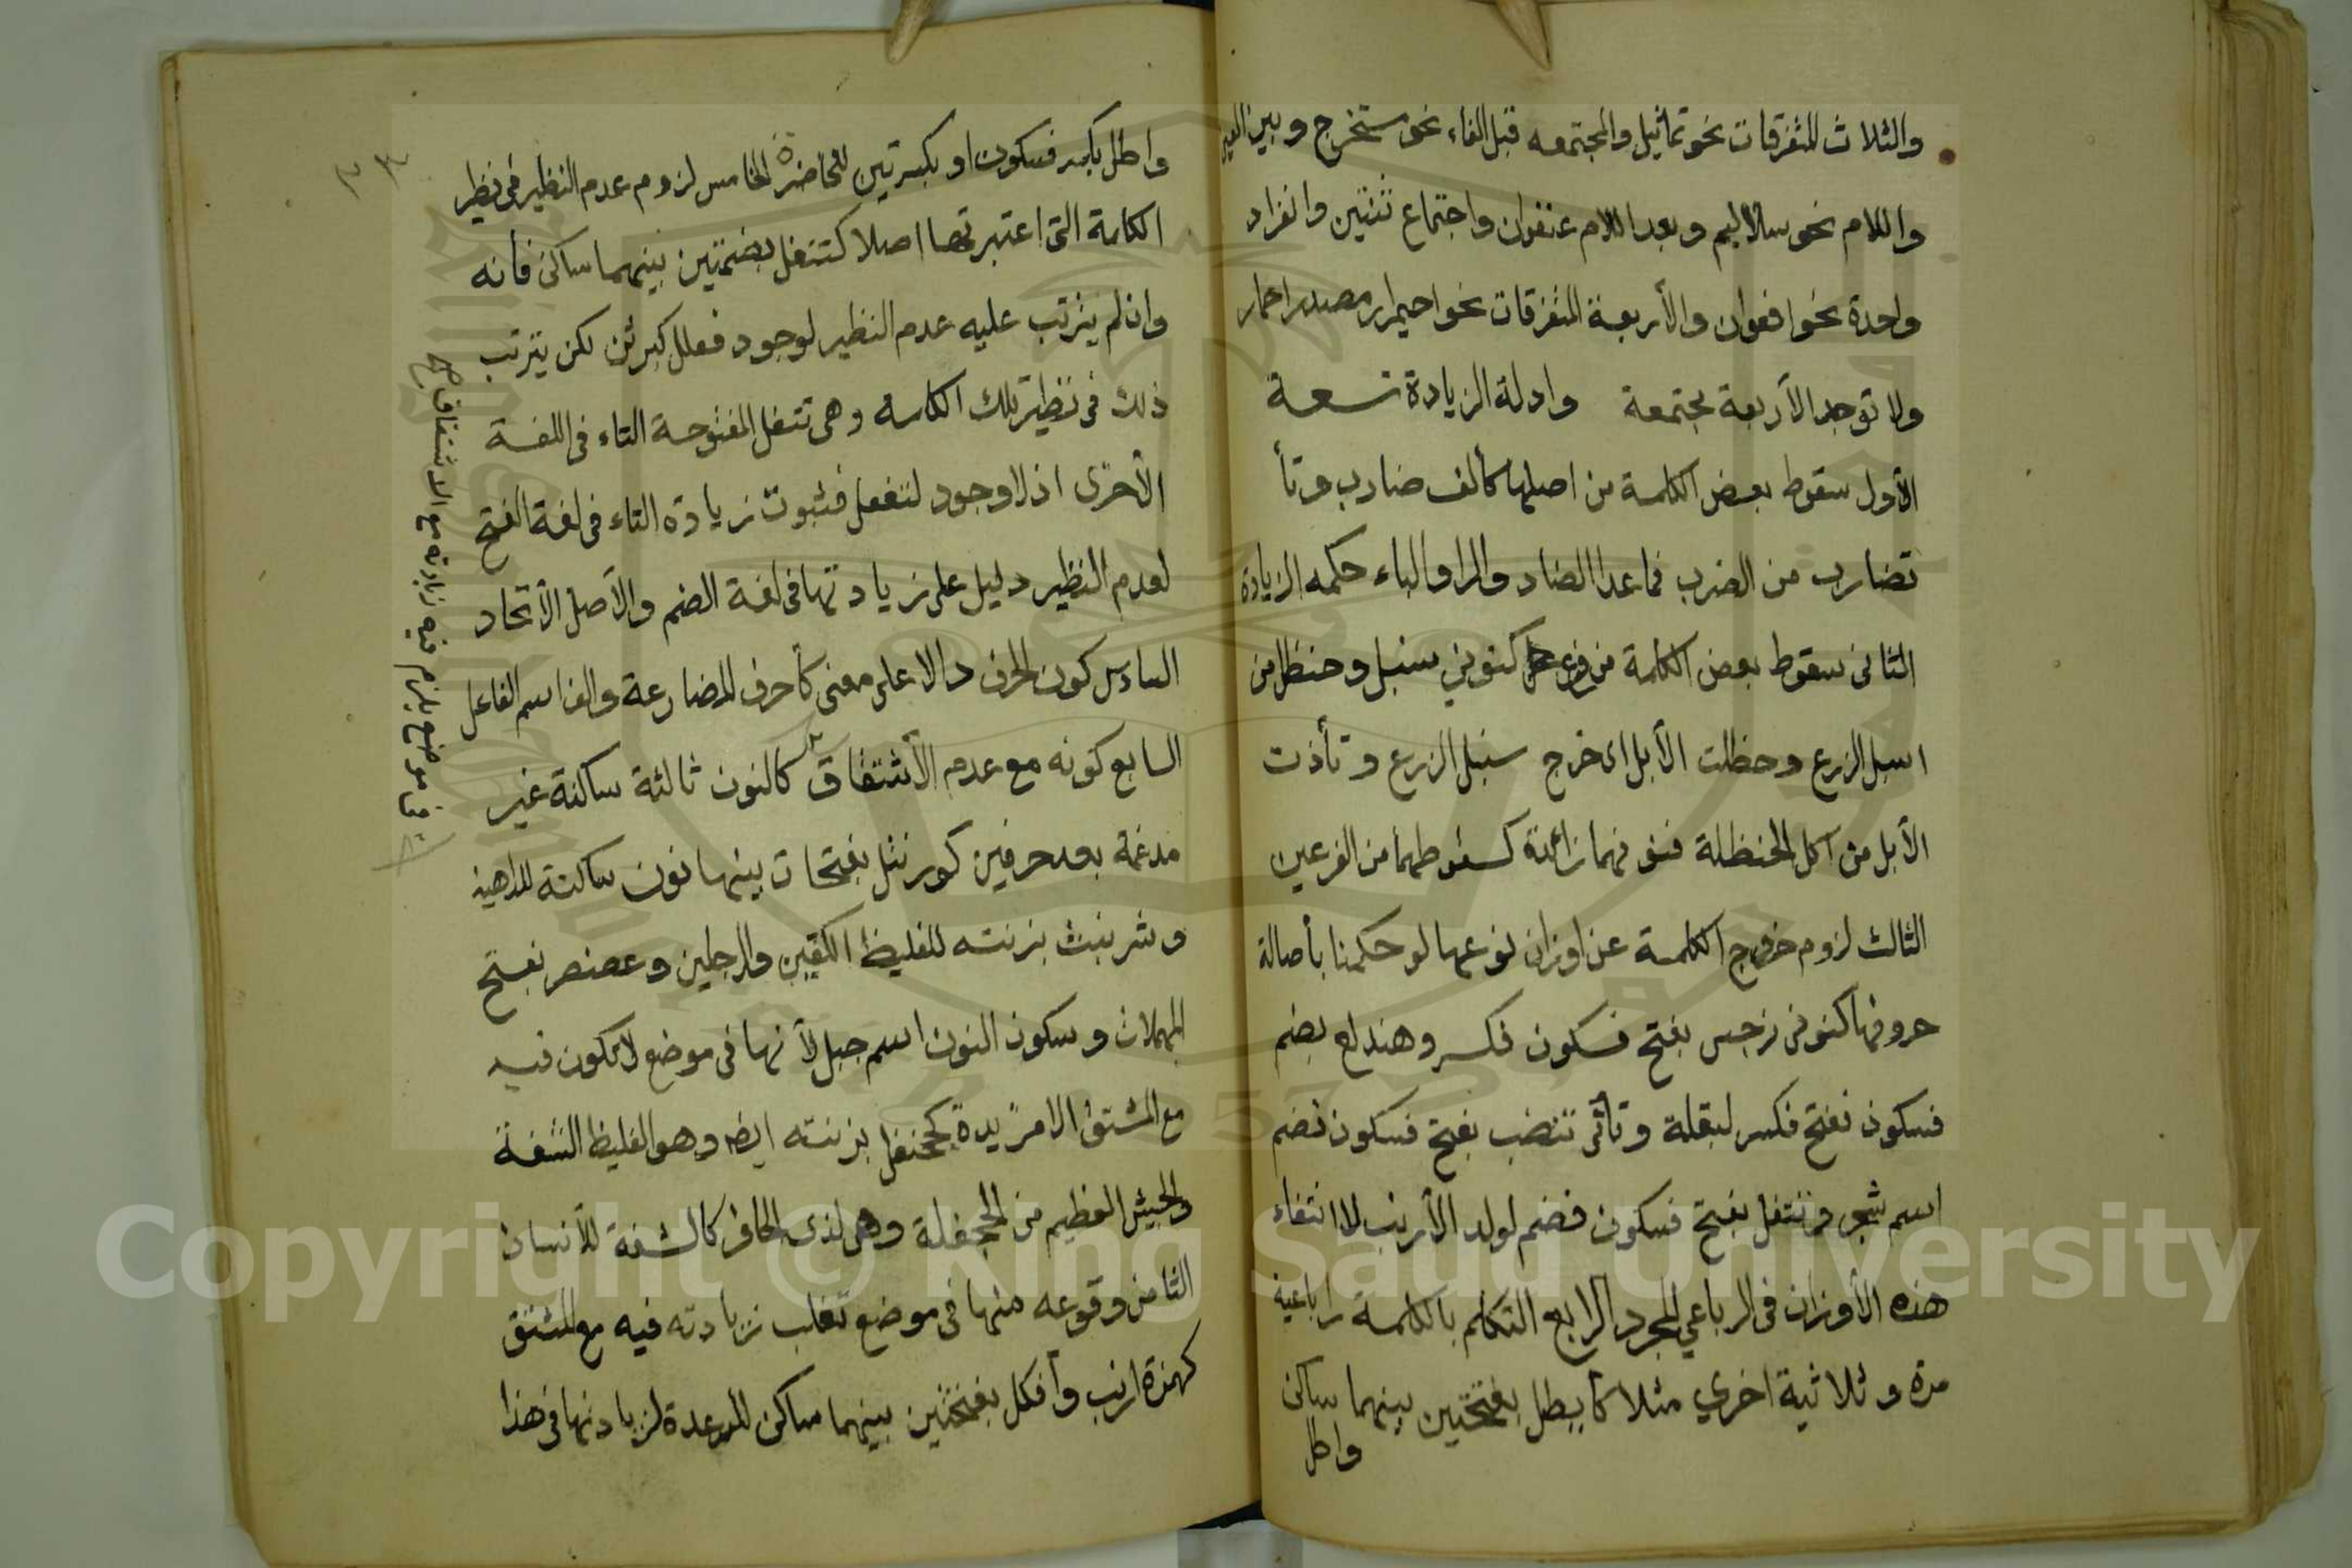 والثلاث المتفرقات نحو تماثيل والمجتمعه قبل الفاء نحو مستخرج وبين العين
واللام نحو سلاليم وبعد اللام عنفوان واجتماع ثنتين وانفراد
واحدة نحو افعوان والأربعة المتفرقات نحو احميرار مصدر احمار
ولا توجد الأربعة مجتمعة وادلة الزيادة تسعة
الأول سقوط بعض الكلمة من اصلها كألف ضارب وتأ
تضارب من الضرب فما عدا الضاد والرا والباء حكمه الزيادة
الثانى سقوط بعض الكلمة من فرع كنونى سنبل وحنظل من
اسبل الزرع وحظلت الأبل اى خرج سنبل الزرع وتأذت
الأبل من اكل الحنظلة فنونهما زائدة لسقوطهما من الفرعين
الثالث لزوم خروج الكلمة عن اوزان نوعها لو حكمنا بأصالة
حروفها كنونى نرجس بفتح فسكون فكسر وهندلع بضم
فسكون ففتح فكسر لبقلة وتأئى تنضب بفتح فسكون فضم
اسم شجر وتتفل بفتح فسكون فضم لولد الأرنب لانتفاء
هذه الأوزان فى الرباعي المجرد الرابع التكلم بالكلمة رباعية
مرة وثلاثية اخرى مثلا كأيطل بفتحتين بينهما ساكن
واطل
واطل بكسر فسكون او بكسرتين للخاضرة الخامس لزوم عدم النظير فى نظير
الكلمة التى اعتبرتها اصلا كتتفل بضمتين بينهما ساكن فأنه
وان لم يترتب عليه عدم النظير لوجود فعلل كبرثن لكن يترتب
ذلك فى نظير تلك الكلمة وهى تتفل المفتوحة التاء فى اللغة
الأخرى اذ لا وجود لتفعل فثبوت زيادة التاء فى لغة الفتح
لعدم النظير دليل على زيادتها فى لغة الضم والأصل الأتحاد
السادس كون الحرف دالا على معنى كأحرف المضارعة والف اسم الفاعل
السابع كونه مع عدم الأشتقاق كالنون ثالثة ساكنة غير
مدغمة بعد حرفين كورنتل بفتحات بينها نون ساكنة للداهية
وشرنبث بزنته للغليظ الكفين والرجلين وعصنصر بفتح
المهملات وسكون النون اسم جبل لأنها فى موضع لا تكون فيه
مع المشتق الا مزيدة كجحنفل بزنته ايضا وهو الغليظ الشفة
والجيش العظيم من الجحفلة وهى لذى الحافر كالشفة للأنسان
الثامن وقوعه منها فى موضع تغلب زيادته فيه مع المشتق
كهمزة ارنب وأفكل بفتحتين بينهما ساكن للرعدة لزيادتها فى هذا
فى موضع يلزم فيه زيادته مع الاشتقاق صح